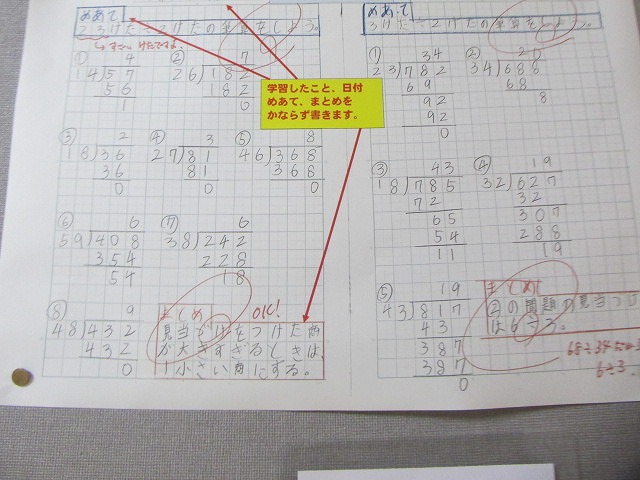 めあて
2、3けた÷2けたの筆算をしよう。
① 4
14)57
56
1
② 7
26)182
182
0
学習したこと、日付
めあて、まとめを
かならず書きます。
③ 2
18)36
36
0
④ 3
27)81
81
0
⑤ 8
46)368
368
0
⑥ 6
59)408
354
54
⑦ 6
38)242
228
18
⑧ 9
48)432
432
0
まとめ OK!
見当をつけた商
が大きすぎるときは、
1小さい商にする。
めあて
3けた÷2けたの筆算をしよう。
① 34
23)782
69
92
92
0
② 20
34)688
68
8
③ 43
18)785
72
65
54
11
④ 19
32)627
32
307
288
19
⑤ 19
43)817
43
387
387
0
まとめ
②の問題の見当つけ
は6÷3。
6÷3